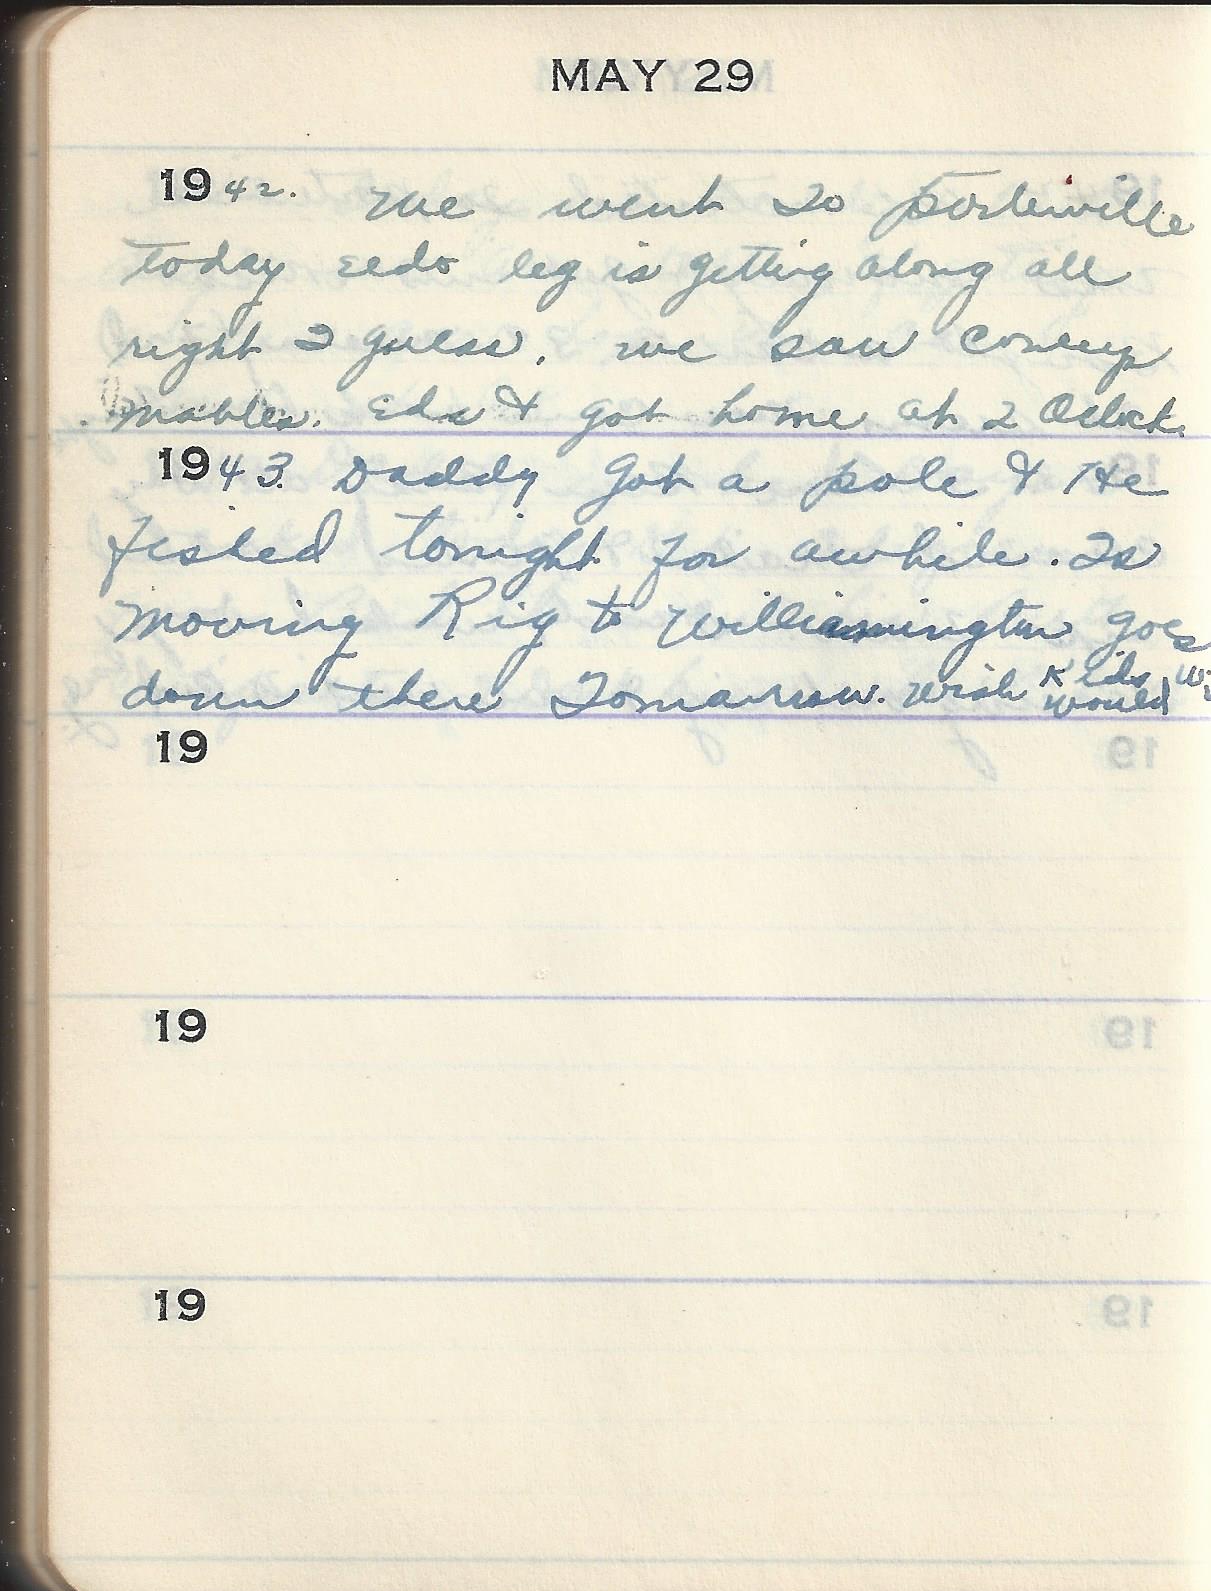 MAY 29
1942. We went To Porterville
today Eeds leg is getting along all
right I guess. we saw
mables. Eds & got home at 2 Oclock.
1943. Daddy Got a pole & He
fished tonight for awhile. Is
moving Rig to Willmington goes
down there Tomarrow. wish Kids
would
19
19
19